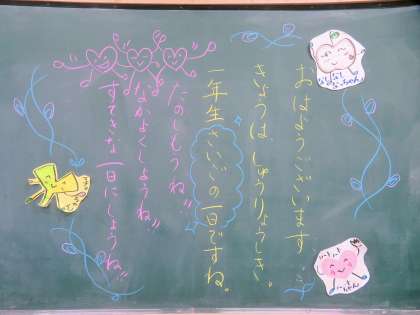 おはようございます。
きょうは、しゅうりょうしき。
一年生さいごの一日ですね。
たのしもうね!!
なかよくしようね!!
すてきな一日にしようね!!